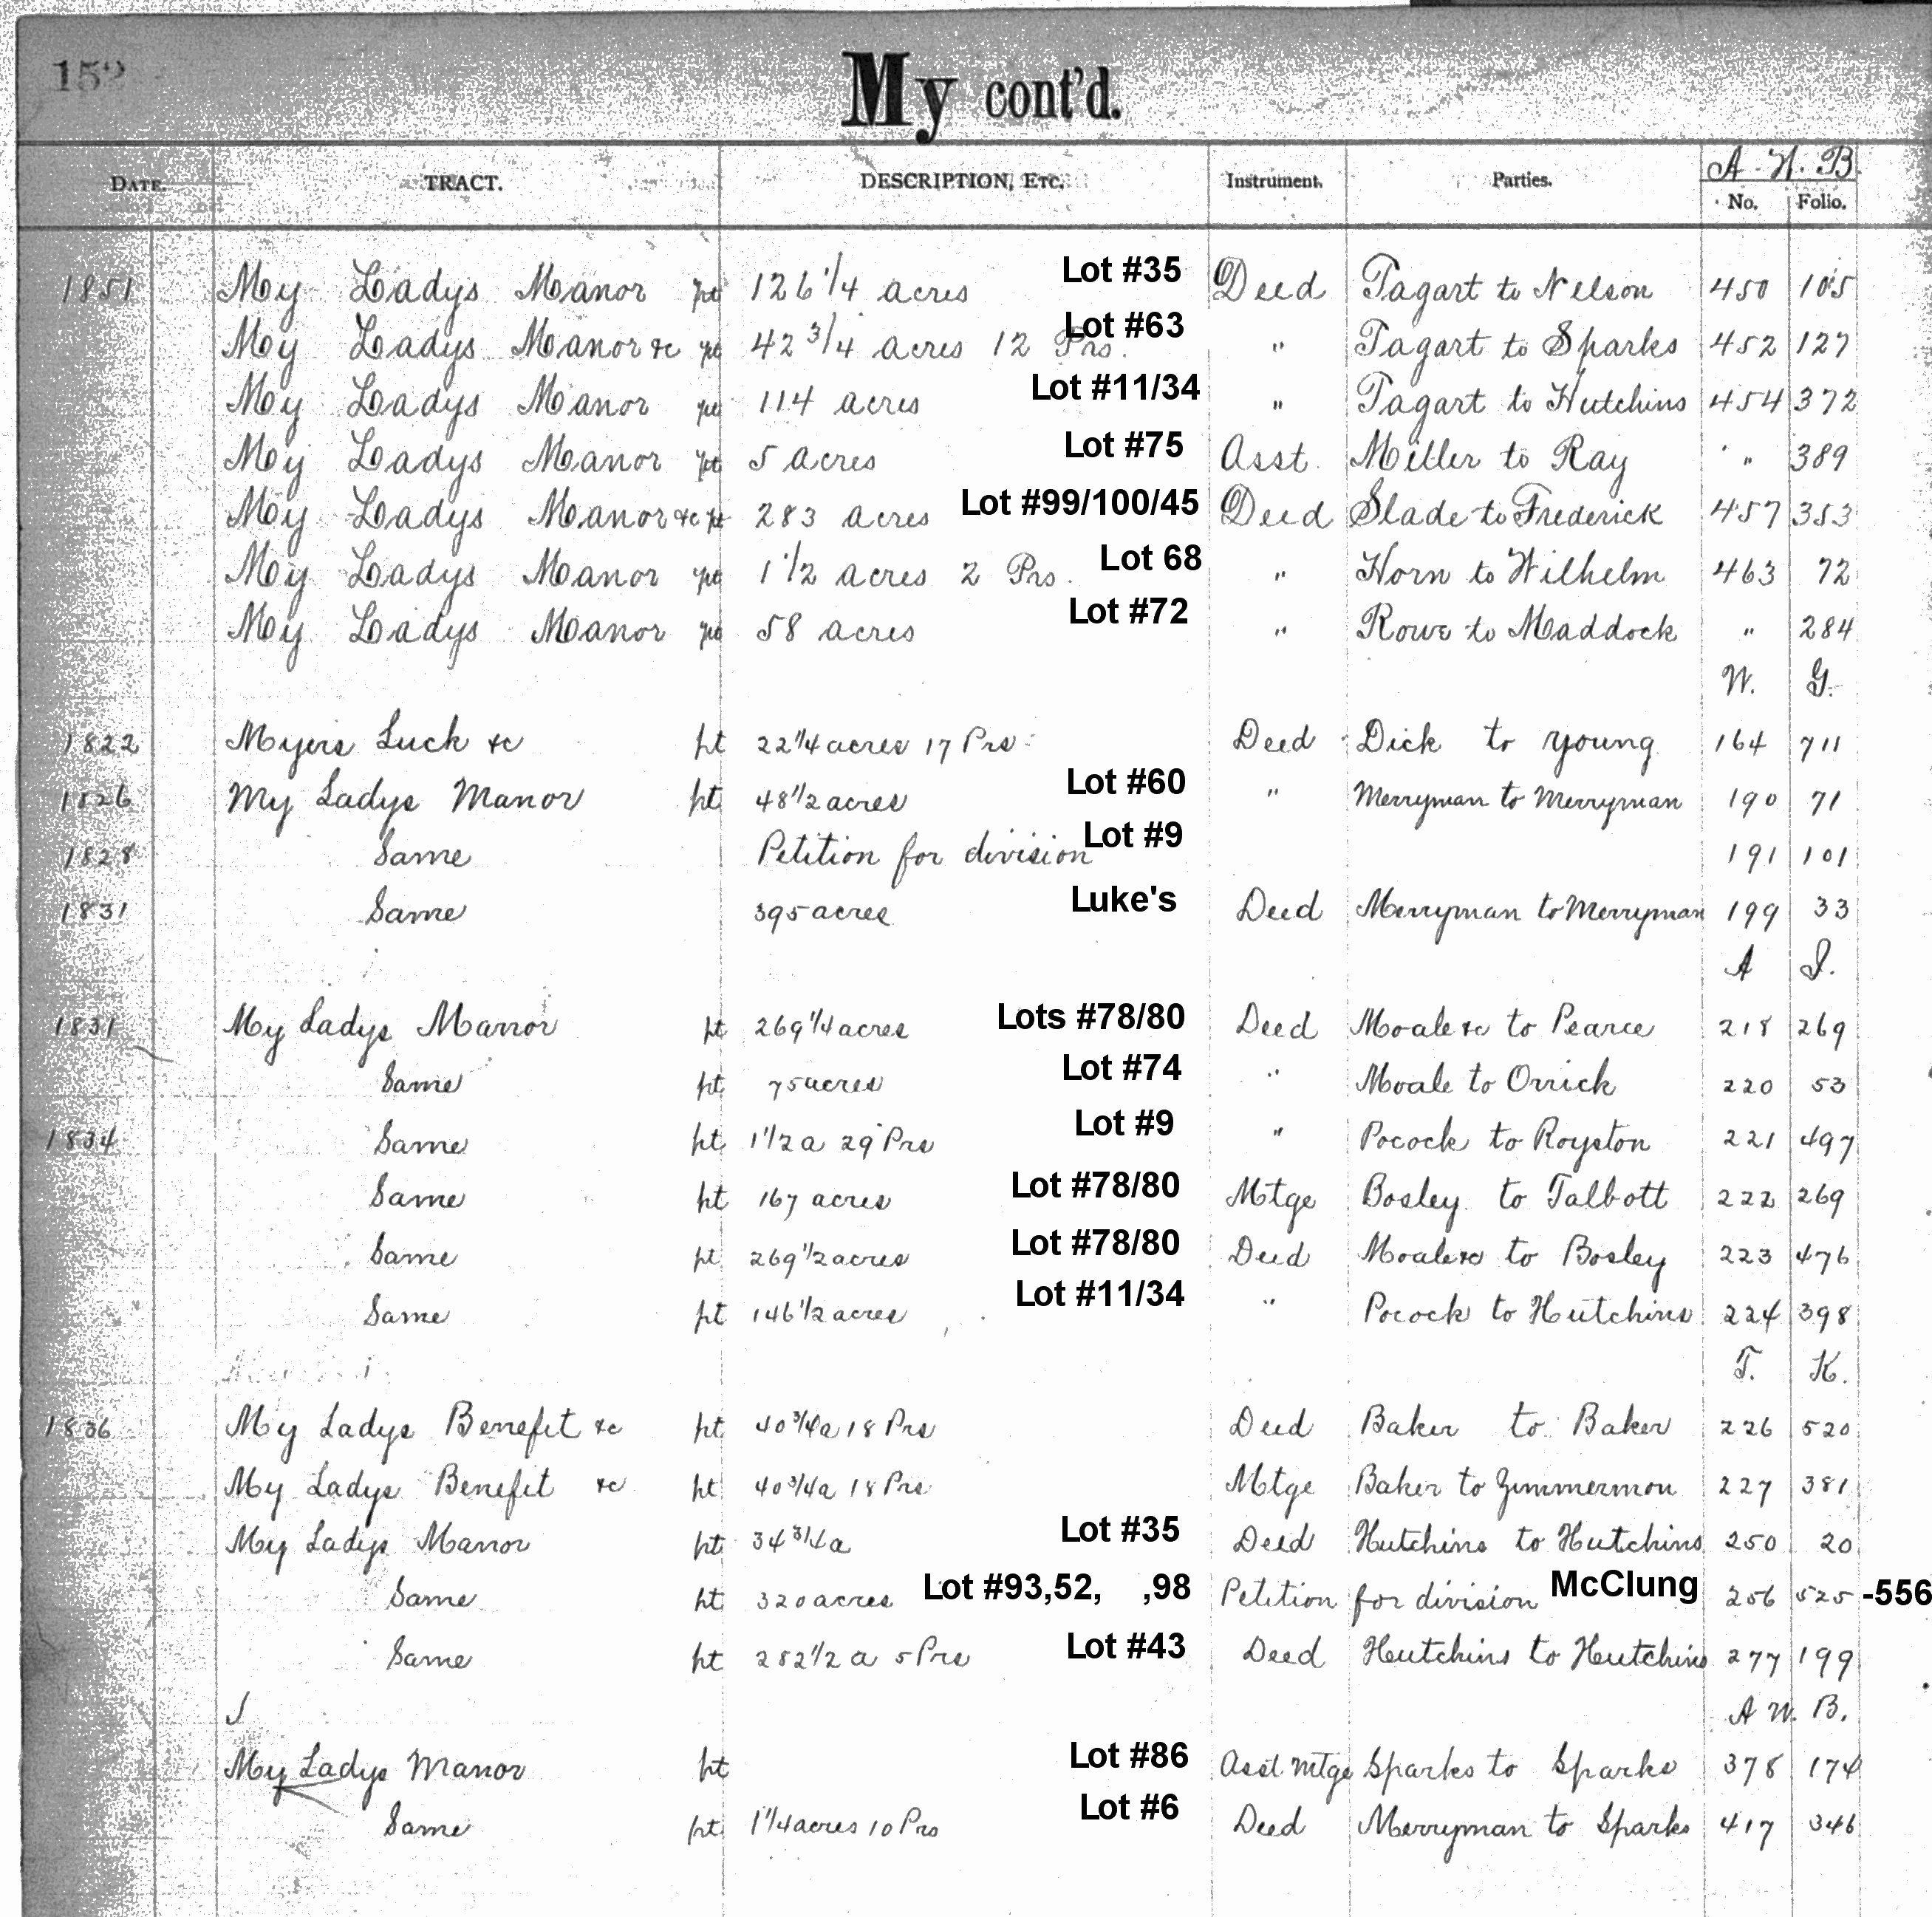 152
My cont'd.
DATE. TRACT. DESCRIPTION, ETC. Instrument. Parties. A. W. B.
No. Folio.
1851 My Ladys Manor pt 126 1/4 acres Lot #35 Deed Tagart to Nelson 450 105
My Ladys Manor &c pt 42 3/4 acres 12 Prs. Lot #63 " Tagart to Sparks 452 127
My Ladys Manor pt 114 acres Lot #11/34 " Tagart to Hutchins 454 372
My Ladys Manor pt 5 acres Lot #75 Asst. Miller to Ray " 389
My Ladys Manor &c pt 283 acres Lot #99/100/45 Deed Slade to Frederick 457 353
My Ladys Manor pt 1 1/2 acres 2 Prs. Lot 68 " Horn to Wilhelm 463 72
My Ladys Manor pt 58 acres Lot #72 " Rowe to Maddock " 284
W. G.
1822 Myers Luck &c pt 22 1/4 acres 17 Prs. Deed Dick to Young 164 711
1826 My Ladys Manor pt 48 1/2 acres Lot #60 " Merryman to Merryman 190 71
1828 Same Petition for division Lot #9 191 101
1831 Same 395 acres Luke's Deed Merryman to Merryman 199 33
A I.
1831 My Ladys Manor pt 269 1/4 acres Lots #78/80 Deed Moale &c to Pearce 218 269
Same pt 75 acres Lot #74 " Moale to Orrick 220 53
1834 Same pt 1 1/2 a 29 Prs Lot #9 " Pocock to Royston 221 497
Same pt 167 acres Lot #78/80 Mtge Bosley to Talbott 222 269
Same pt 269 1/2 acres Lot #78/80 Deed Moale &c to Bosley 223 476
Same pt 146 1/2 acres Lot #11/34 " Pocock to Hutchins 224 398
T. K.
1836 My Ladys Benefit &c pt 40 3/4 a 18 Prs Deed Baker to Baker 226 520
My Ladys Benefit &c pt 40 3/4 a 18 Prs Mtge Baker to Zimmermon 227 381
My Ladys Manor pt 34 3/4 a Lot #35 Deed Hutchins to Hutchins 250 20
Same pt 320 acres Lot #93,52, ,98 Petition for division McClung 256 525 -556
Same pt 282 1/2 a 5 Prs Lot #43 Deed Hutchins to Hutchins 277 199
A W. B.
My Ladys Manor pt Lot #86 Asst Mtge Sparks to Sparks 378 174
Same pt 1 1/4 acres 10 Prs Lot #6 Deed Merryman to Sparks 417 346